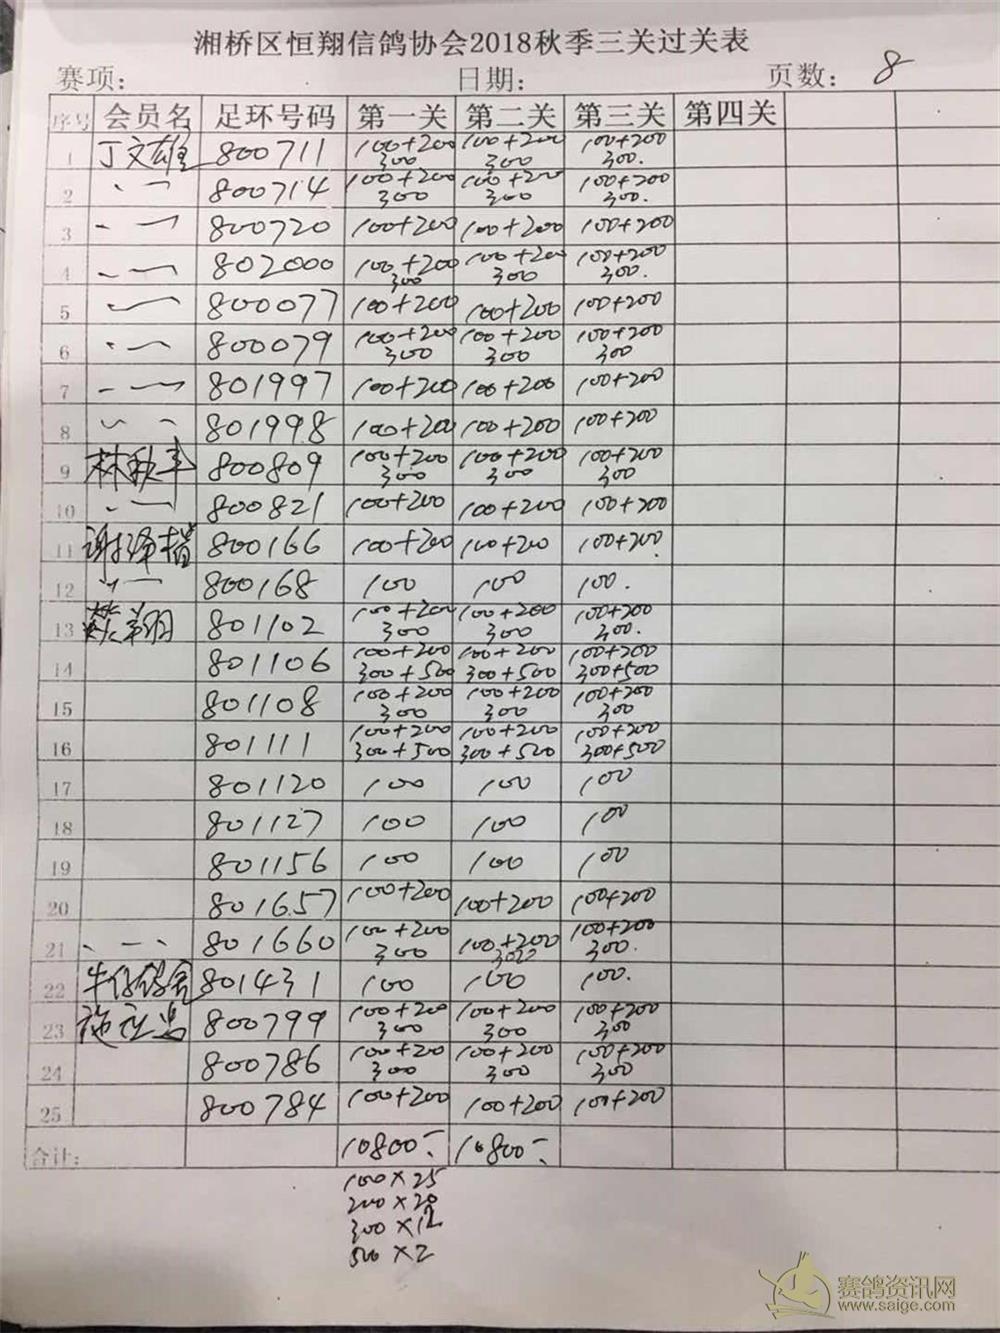 湘桥区恒翔信鸽协会2018秋季三关过关表
赛项: 日期: 页数: 8
序号 会员名 足环号码 第一关 第二关 第三关 第四关
1 丁文雄 800711 100+200 300 100+200 300 100+200 300.
2 〃 800714 100+200 300 100+200 300 100+200 300.
3 〃 800720 100+200 100+200 100+200
4 〃 802000 100+200 300 100+200 300 100+200 300.
5 〃 800077 100+200 100+200 100+200
6 〃 800079 100+200 300 100+200 300 100+200 300
7 〃 801997 100+200 100+200 100+200
8 〃 801998 100+200 100+200 100+200
9 林秋丰 800809 100+200 300 100+200 300 100+200 300
10 〃 800821 100+200 100+200 100+200
11 谢泽楷 800166 100+200 100+200 100+200
12 〃 800168 100 100 100.
13 翔 801102 100+200 300 100+200 300 100+200 300.
14 801106 100+200 300+500 100+200 300+500 100+200 300+500
15 801108 100+200 300 100+200 300 100+200 300
16 801111 100+200 300+500 100+200 300+500 100+200 300+500
17 801120 100 100 100
18 801127 100 100 100
19 801156 100 100 100
20 801657 100+200 100+200 100+200
21 〃 801660 100+200 300 100+200 300 100+200 300.
22 牛仔鸽舍 801431 100 100 100.
23 施 800799 100+200 300 100+200 300 100+200 300
24 800786 100+200 300 100+200 300 100+200 300
25 800784 100+200 100+200 100+200
合计: 10800- 10800-
100×25
200×20
300×12
500×2
赛鸽资讯网
www.saige.com